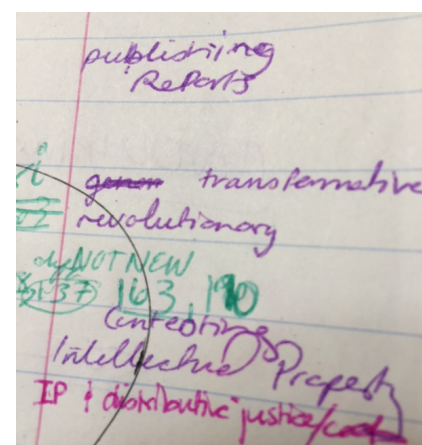 publishiing
Reports
transformative
revolutionary
NOT NEW
137 163, 190
Contesting
Intellectual Property
IP & distributive justice/